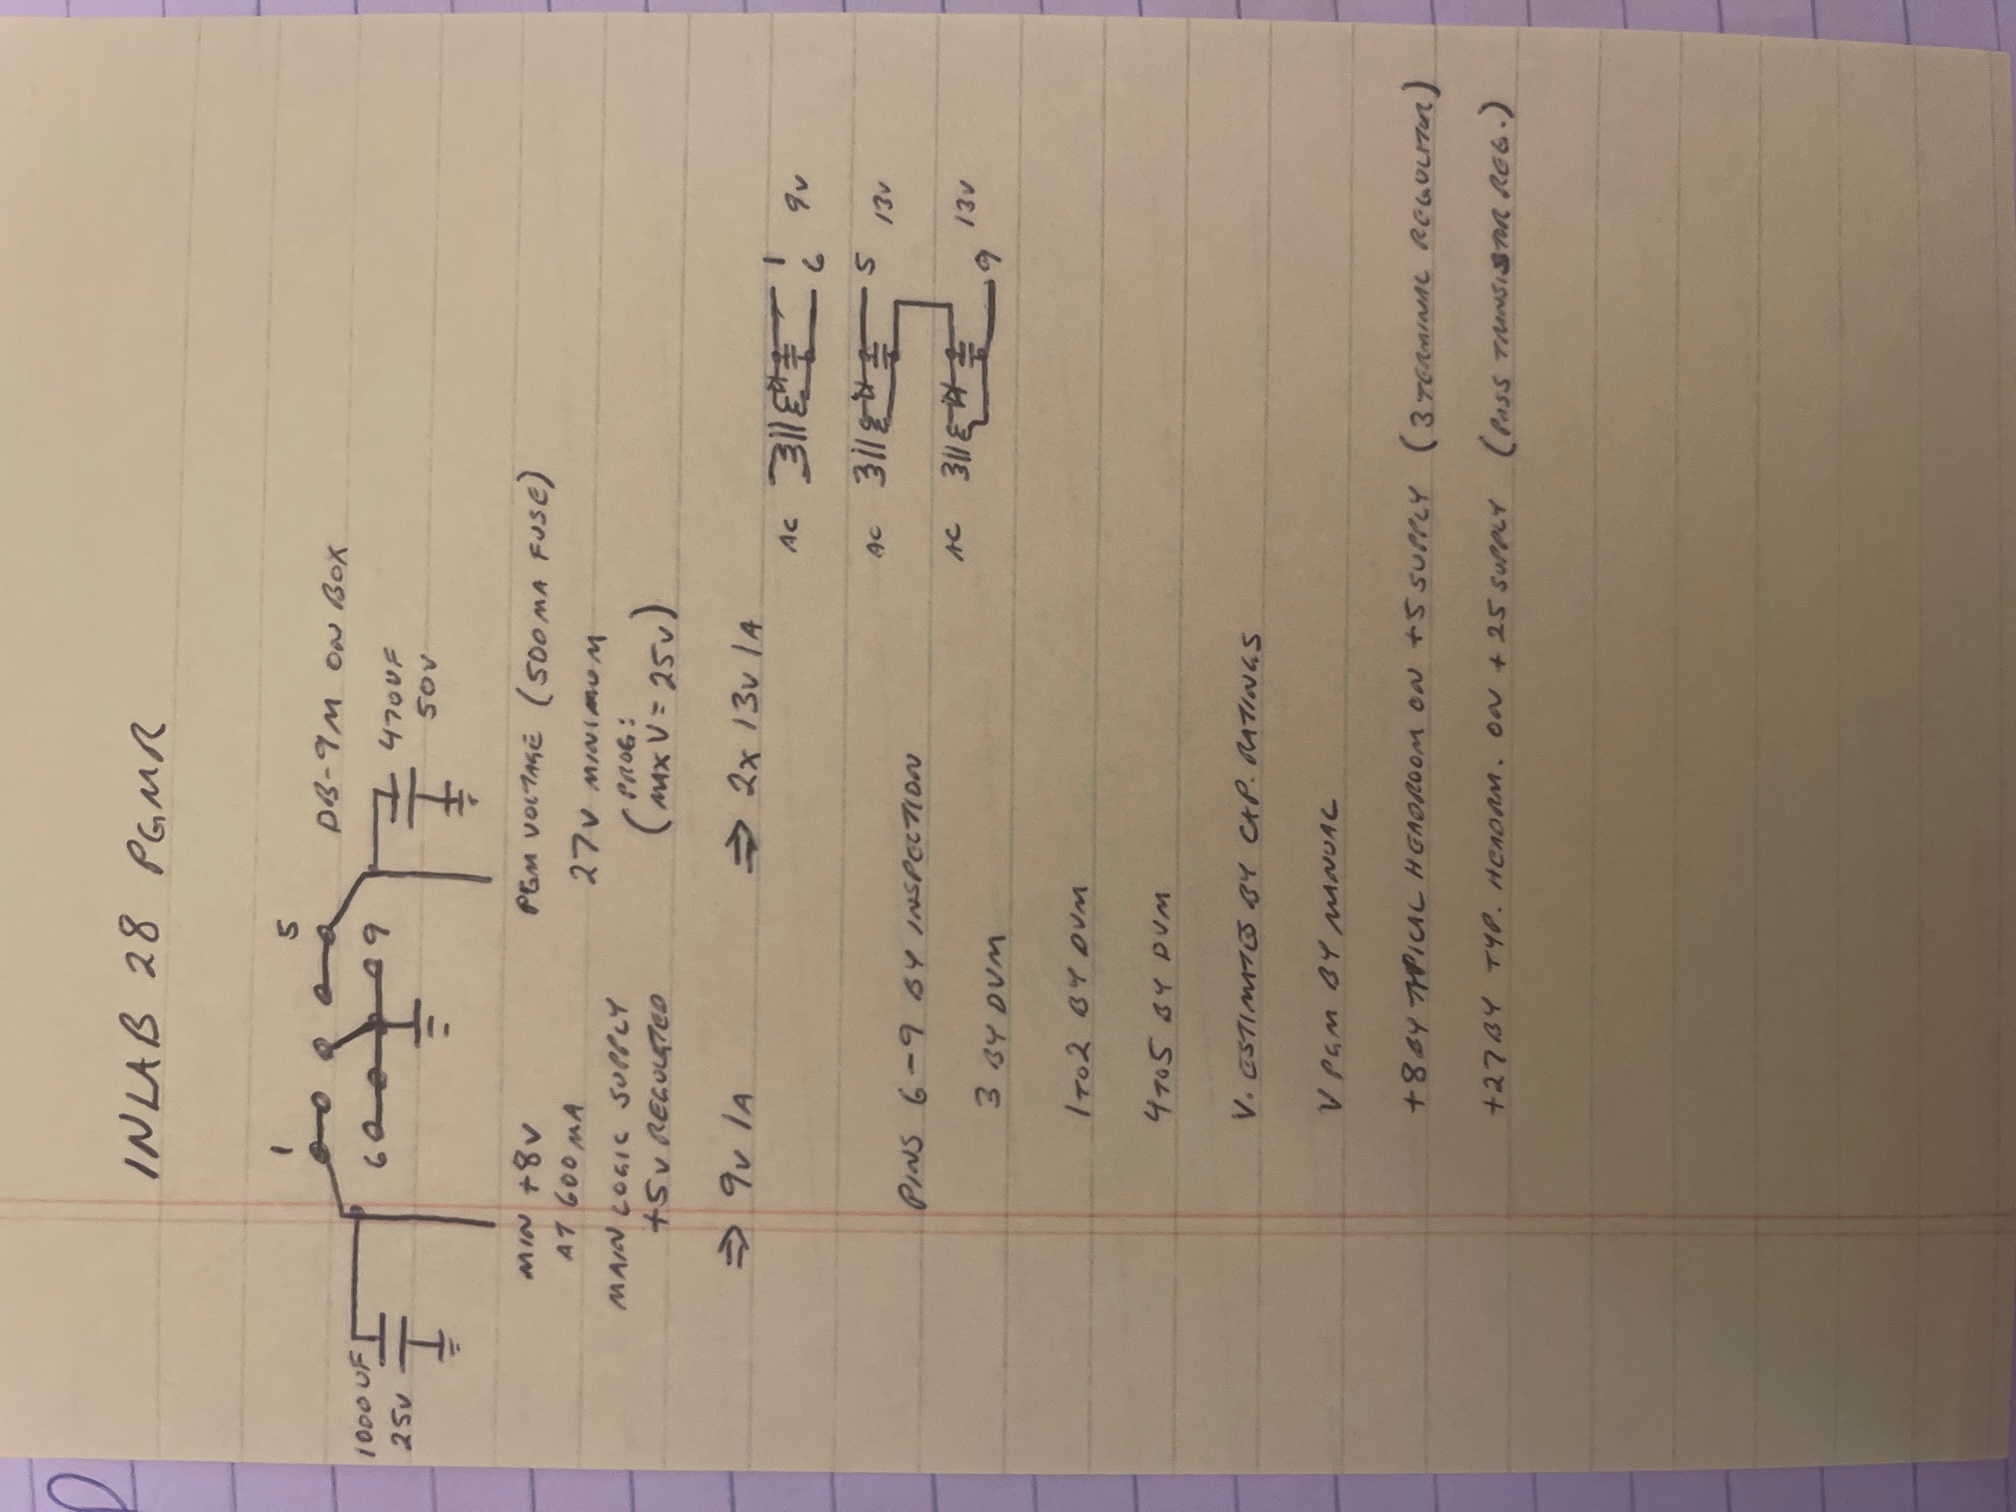 INLAB 28 PGMR
DB-9M ON BOX
1 5
6 9
1000UF
25V
470UF
50V
MIN +8V
AT 600MA
MAIN LOGIC SUPPLY
+5V REGULATED
PGM VOLTAGE (500MA FUSE)
27V MINIMUM
(PROG:
MAX V = 25V)
⇒ 9V 1A
⇒ 2X 13V 1A
AC 1
6 9V
AC 5 13V
AC 9 13V
PINS 6-9 BY INSPECTION
3 BY DVM
1 TO 2 BY DVM
4 TO 5 BY DVM
V. ESTIMATES BY CAP. RATINGS
V PGM BY MANUAL
+8 BY TYPICAL HEADROOM ON +5 SUPPLY (3 TERMINAL REGULATOR)
+27 BY TYP. HEADRM. ON +25 SUPPLY (PASS TRANSISTOR REG.)